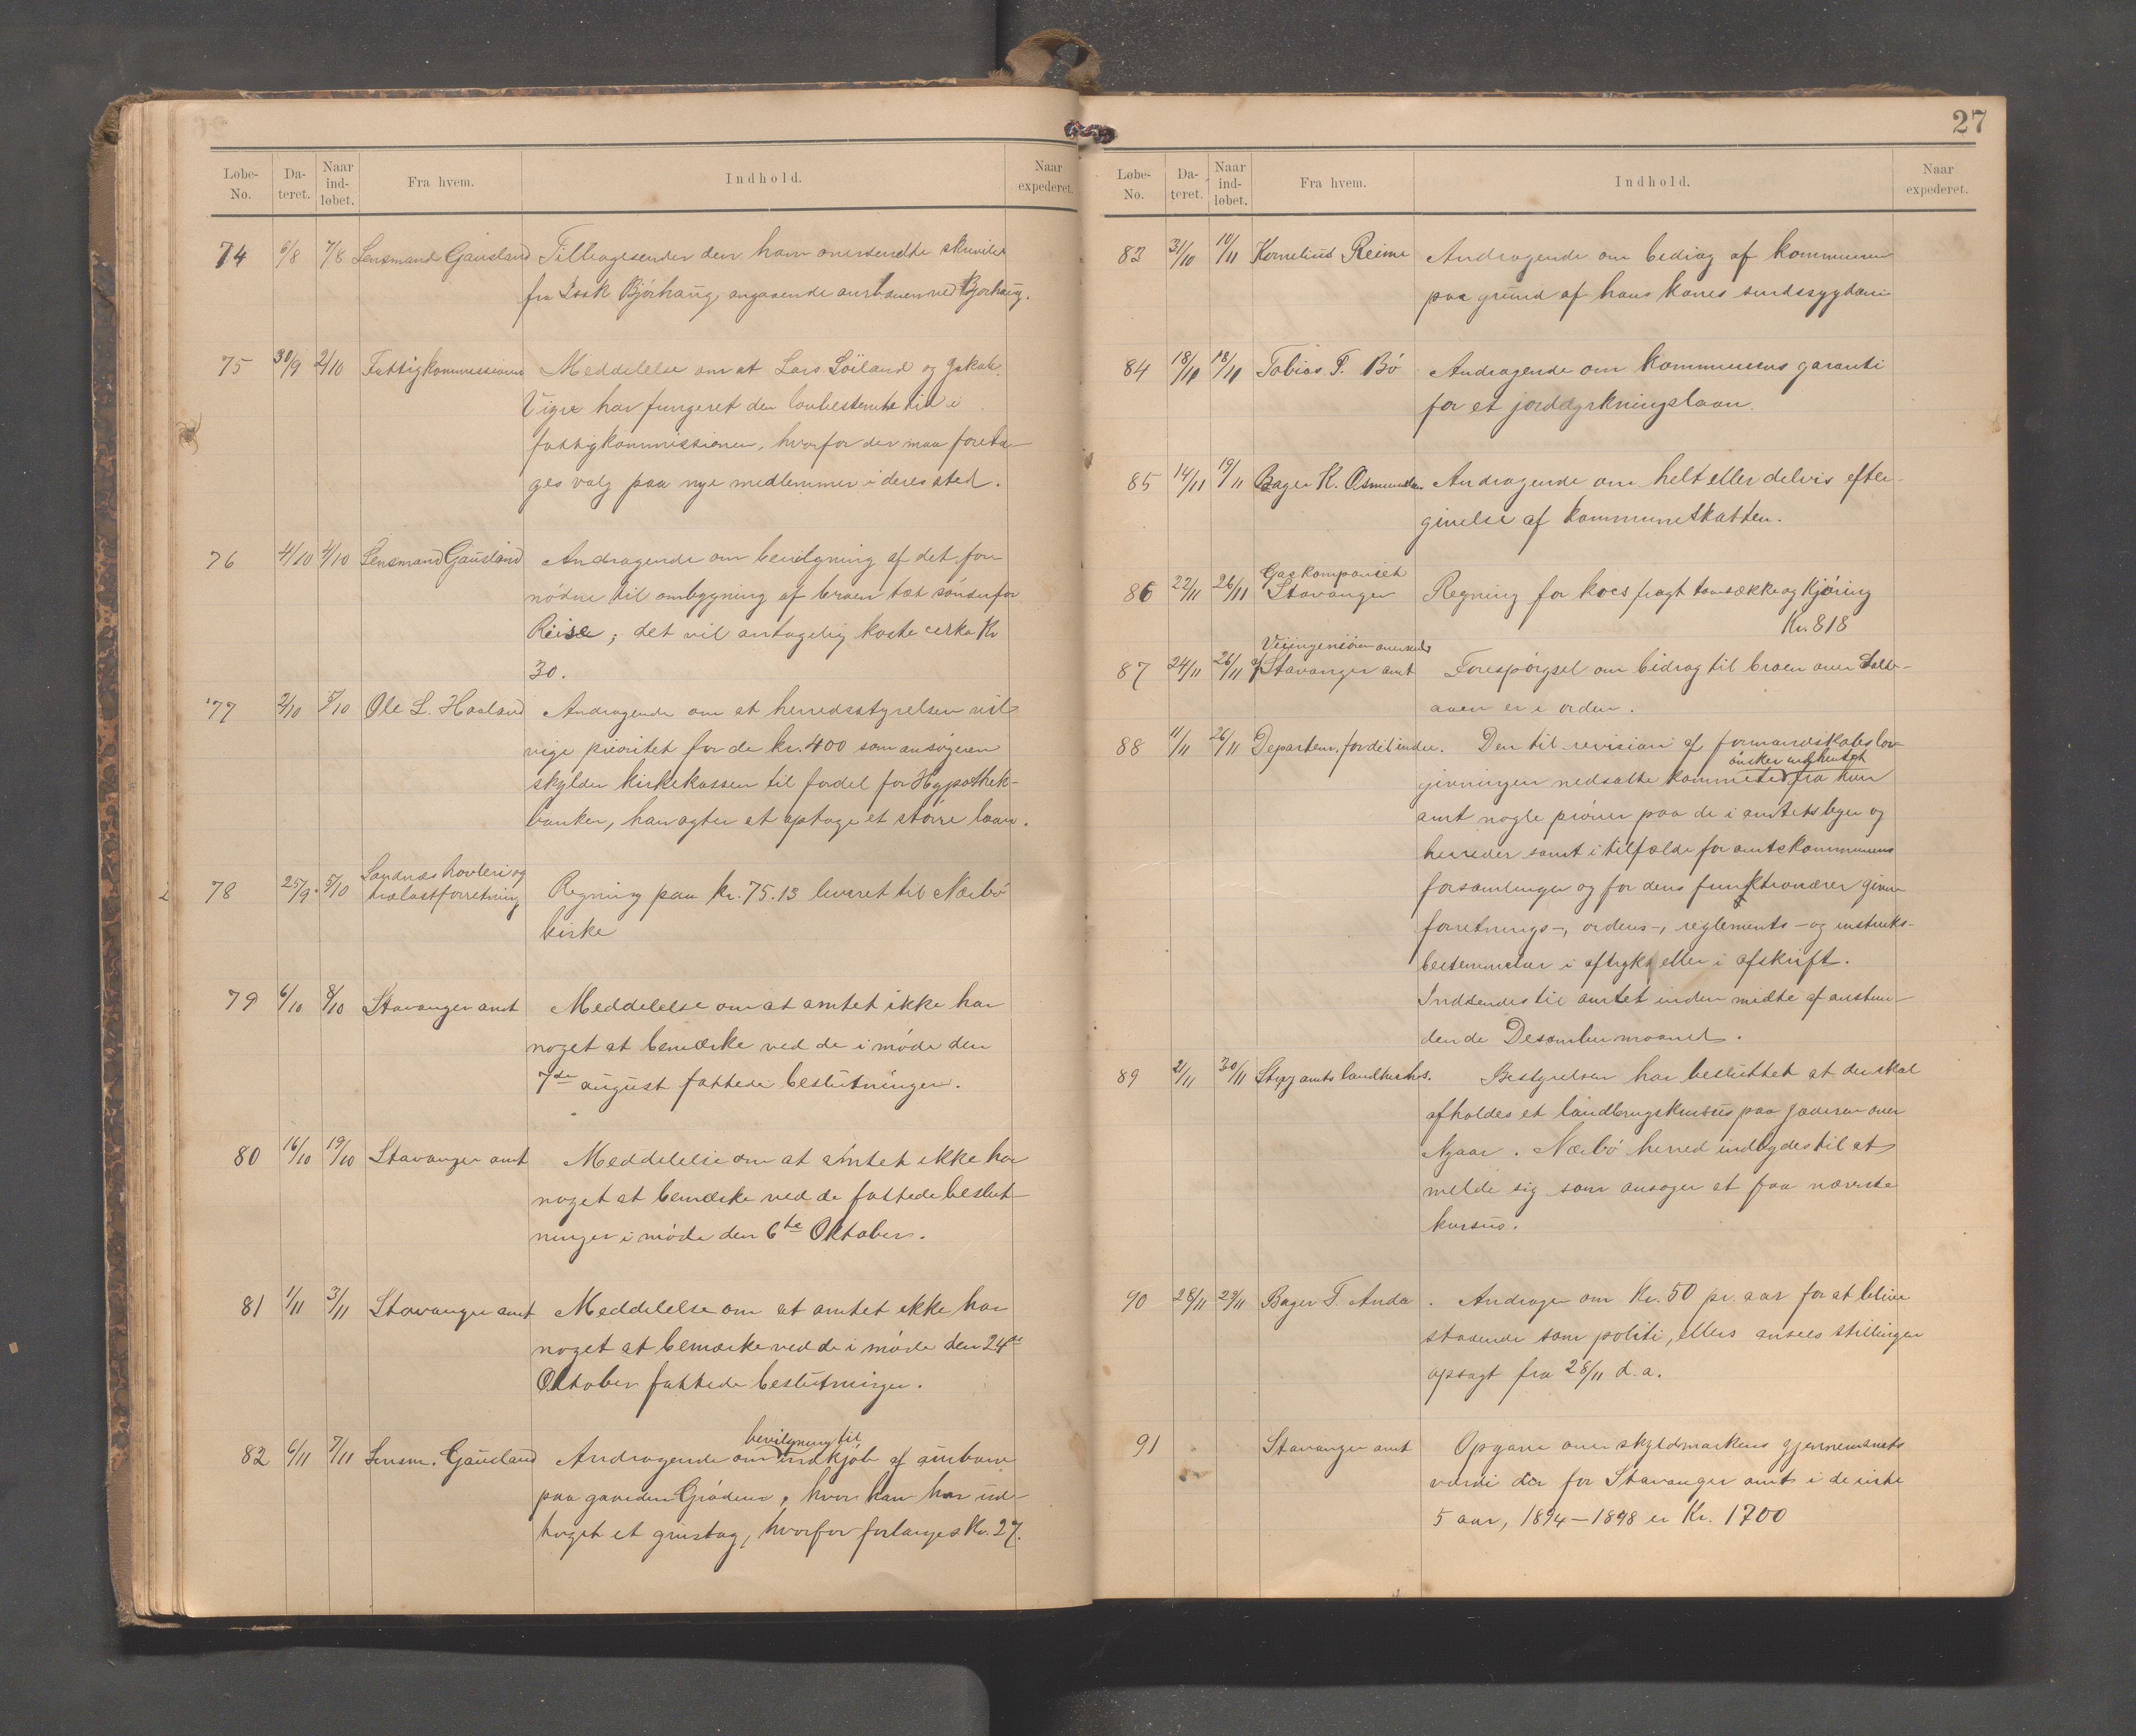 27
Løbe-No. Da-teret. Naar ind-løbet. Fra hvem. Indhold. Naar expederet.
74 6/8 7/8 Lensmand Gausland Tilbagesender den ham oversendte skrivelse
fra Isak Bjórhaug, angaaende aurbanen ved Bjorhaug.
75 30/9 2/10 Fattigkommissionen Meddelelse om at Lars Söiland og Jakob
Vigre har fungeret den lovbestemte tid i
fattigkommissionen, hvorfor der maa foreta-
ges valg paa nye medlemmer i deres sted.
76 4/10 4/10 Lensmand Gausland Andragende om bevilgning af det for-
nódne til ombygning af broen tæt sóndenfor
Reise; det vil antagelig koste cirka Kr
30.
77 2/10 5/10 Ole L. Haaland Andragende om at herredsstyrelsen vil
vige prioritet for de kr. 400 som ansógeren
skylder kirkekassen til fordel for Hypothek-
banken, han agter at optage et stórre laan.
78 25/9. 5/10 Sandnes høvleri og
trælastforretning Regning paa kr. 75.13 leveret til Nærbó
kirke
79 6/10 8/10 Stavanger amt Meddelelse om at amtet ikke har
noget at bemærke ved de i móde den
7de august fattede beslutninger.
80 16/10 19/10 Stavanger amt Meddelelse om at amtet ikke har
noget at bemærke ved de fattede beslut-
ninger i móde den 6te Oktober.
81 1/11 3/11 Stavanger amt Meddelelse om at amtet ikke har
noget at bemærke ved de i móde den 24de
Oktober fattede beslutninger.
82 6/11 7/11 Lensm. Gausland Andragende om bevilgning til indkjób af aurbane
paa gaarden Gródem, hvor han har ud-
taget et grustag, hvorfor forlanges Kr. 27.
Løbe-No. Da-teret. Naar ind-løbet. Fra hvem. Indhold. Naar expederet.
83 31/10 10/11 Kornelius Reime Andragende om bidrag af kommunen
paa grund af hans kones sindssygdom
84 18/11 18/11 Tobias T. Bó Andragende om kommunens garanti
for et jorddyrkningslaan.
85 14/11 19/11 Bager K. Osmundsen Andragende om helt eller delvis efter-
givelse af kommuneskatten.
86 22/11 26/11 Gaskompaniet
Stavanger Regning for kocs fragt tomsække og kjóring
Kr. 818
87 24/11 26/11 Veiingeniören
Stavanger amt Forespórgsel om bidrag til broen over
aaen er i orden.
88 11/11 26/11 Departem. for det indre. Den til revision af formandskabslov-
givningen nedsatte kommité ónsker indhentet fra hver
amt nogle próver paa de i amtets byer og
herreder samt i tilfælde for amtskommunens
forsamlinger og for dens funktionærer givne
forretnings-, ordens-, reglements- og instruks-
bestemmelser i aftrykt eller i afskrift.
Indsendes til amtet inden midte af anstun-
dende Desember maaned.
89 21/11 30/11 Stvgr amts landhushs. Bestyrelsen har besluttet at der skal
afholdes et landbrugskursus paa Jæderen over
Nyaar. Nærbó herred indbydes til at
melde sig som ansóger at faa nærværte
kursus.
90 28/11 29/11 Bager T. Anda. Andrager om Kr. 50 pr. aar for at blive
staaende som politi, ellers ansees stillingen
opsagt fra 28/11 d. a.
91 Stavanger amt Opgave over skyldmarkens gjennemsnits
værdi der for Stavanger amt i de sidste
5 aar, 1894-1898 er Kr. 1700